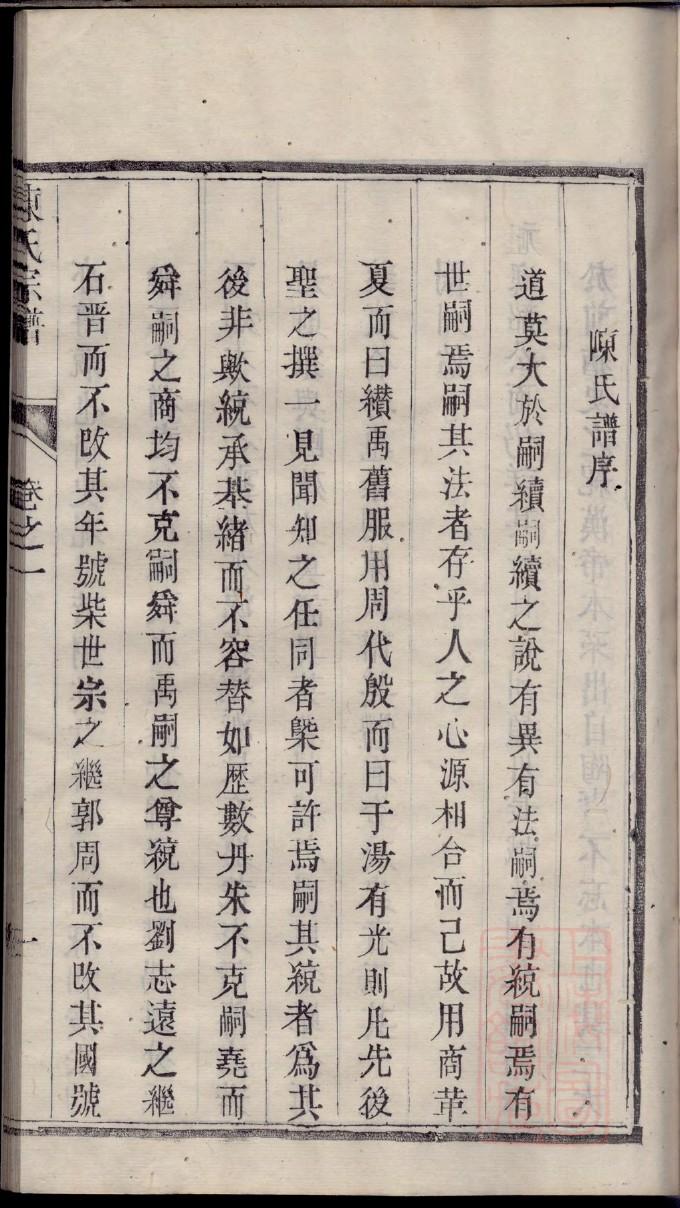 陳氏譜序
道莫大於嗣續嗣續之說有異有法嗣焉有統嗣焉有
世嗣焉嗣其法者存乎人之心源相合而已故用商革
夏而曰纉禹舊服用周代殷而曰于湯有光則凡先後
聖之撰一見聞知之任同者槩可許焉嗣其統者爲其
後非歟統承基緒而不容替如歴數丹朱不克嗣堯而
舜嗣之商均不克嗣舜而禹嗣之尊統也劉志遠之繼
石晋而不改其年號柴世宗之繼郭周而不改其國號
陳氏宗譜
卷之一
一